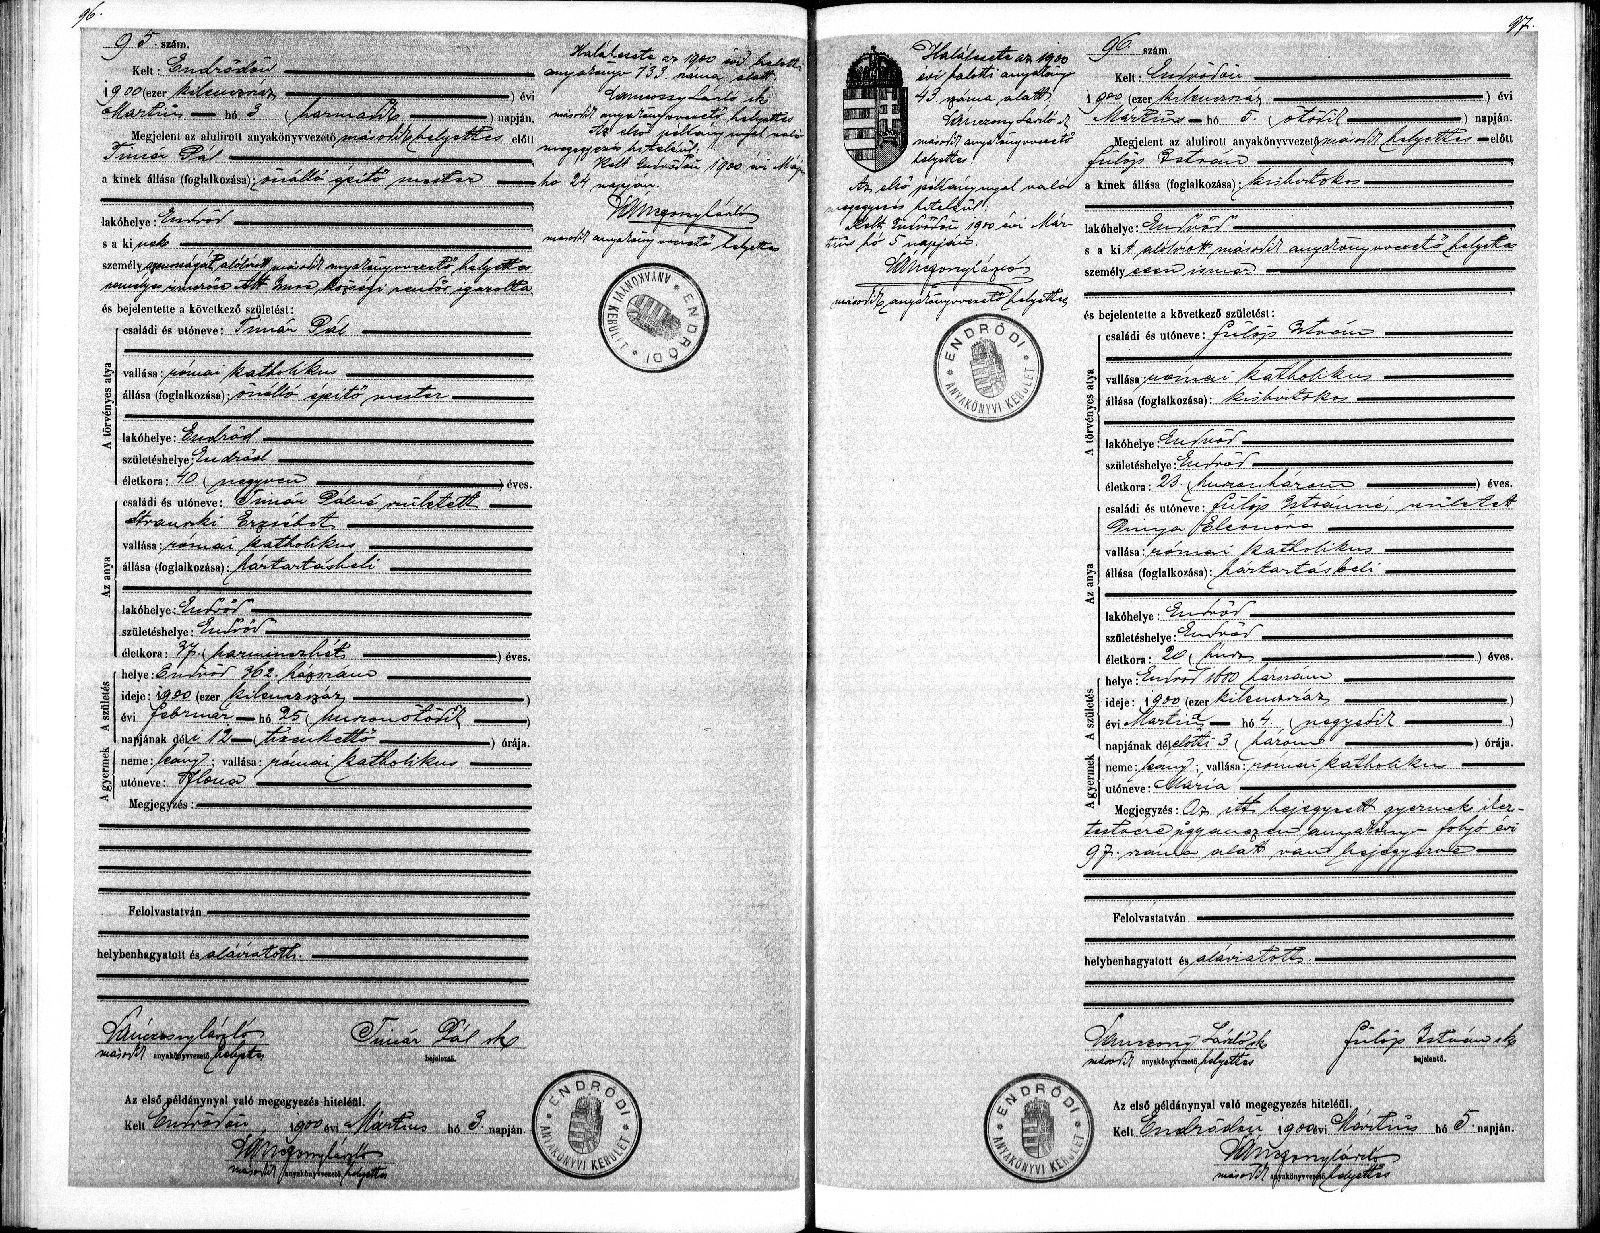 96.
95. szám.
Kelt: Endrődön
1900 (ezer kilenczszáz ) évi
Mártius hó 3 (harmadik ) napján.
Megjelent az alulirott anyakönyvvezető második helyettes előtt
Timár Pál
a kinek állása (foglalkozása): önálló építő mester
lakóhelye: Endrőd
s a ki nek
személyazonosságát alólirott második anyakönyvvezető helyettes
személyes községi rendőr igazolta
és bejelentette a következő születést:
A törvényes atya
családi és utóneve: Timár Pál
vallása: római katholikus
állása (foglalkozása): önálló építő mester
lakóhelye: Endrőd
születéshelye: Endrőd
életkora: 40 (negyven ) éves.
Az anya
családi és utóneve: Timár Pálné született
Erzsébet
vallása: római katholikus
állása (foglalkozása): háztartásbeli
lakóhelye: Endrőd
születéshelye: Endrőd
életkora: 37. (harminczhét ) éves.
A születés
helye: Endrőd 762. házszám
ideje: 1900 (ezer kilenczszáz )
évi február hó 25 (huszonötödik )
napjának dél 12 (tizenkettő ) órája.
A gyermek
neme: leány; vallása: római katholikus
utóneve: Ilona
Megjegyzés:
Felolvastatván
helybenhagyatott és aláíratott.
Lánczonyi László
második anyakönyvvezető helyettes
Timár Pál sk
bejelentő.
Az első példánynyal való megegyezés hiteléül.
Kelt Endrődön, 1900 évi Mártius hó 3. napján.
Lánczonyi László
második anyakönyvvezető helyettes
ENDRŐDI * ANYAKÖNYVI KERÜLET *
Halálesete az 1900 évi halotti
anyakönyv 133 száma alatt.
Lánczonyi László sk
második anyakönyvvezető helyettes
Az első példánynyal való
megegyezés hiteléül.
Kelt Endrődön 1900 évi Már.
hó 24 napján.
Lánczonyi László
második anyakönyvvezető helyettes
ENDRŐDI * ANYAKÖNYVI KERÜLET *
97.
Halálesete az 1900
évi halotti anyakönyv
43 száma alatt.
Lánczonyi László sk
második anyakönyvvezető
helyettes
Az első példánynyal való
megegyezés hiteléül.
Kelt Endrődön 1900 évi Már-
tius hó 5 napján.
Lánczonyi László
második anyakönyvvezető helyettes
ENDRŐDI * ANYAKÖNYVI KERÜLET *
96. szám.
Kelt: Endrődön
1900 (ezer kilenczszáz ) évi
Mártius hó 5. (ötödik ) napján.
Megjelent az alulirott anyakönyvvezető második helyettes előtt
Fülöp István
a kinek állása (foglalkozása): kisbirtokos
lakóhelye: Endrőd
s a ki t alólirott második anyakönyvvezető helyettes
személyesen ismer
és bejelentette a következő születést:
A törvényes atya
családi és utóneve: Fülöp István
vallása: római katholikus
állása (foglalkozása): kisbirtokos
lakóhelye: Endrőd
születéshelye: Endrőd
életkora: 23 (huszonhárom ) éves.
Az anya
családi és utóneve: Fülöp Istvánné, született
Dinya Eleonora
vallása: római katholikus
állása (foglalkozása): háztartásbeli
lakóhelye: Endrőd
születéshelye: Endrőd
életkora: 20 (húsz ) éves.
A születés
helye: Endrőd 1010 házszám
ideje: 1900 (ezer kilenczszáz )
évi Mártius hó 4 (negyedik )
napjának délelőtti 3 (három ) órája.
A gyermek
neme: leány; vallása: római katholikus
utóneve: Mária
Megjegyzés: Az itt bejegyzett gyermek iker-
testvére ugyanezen anyakönyv folyó évi
97. száma alatt van bejegyezve
Felolvastatván
helybenhagyatott és aláíratott.
Lánczonyi László sk
második anyakönyvvezető helyettes
Fülöp István sk
bejelentő.
Az első példánynyal való megegyezés hiteléül.
Kelt Endrődön 1900 évi Mártius hó 5. napján.
Lánczonyi László
második anyakönyvvezető helyettes
ENDRŐDI * ANYAKÖNYVI KERÜLET *